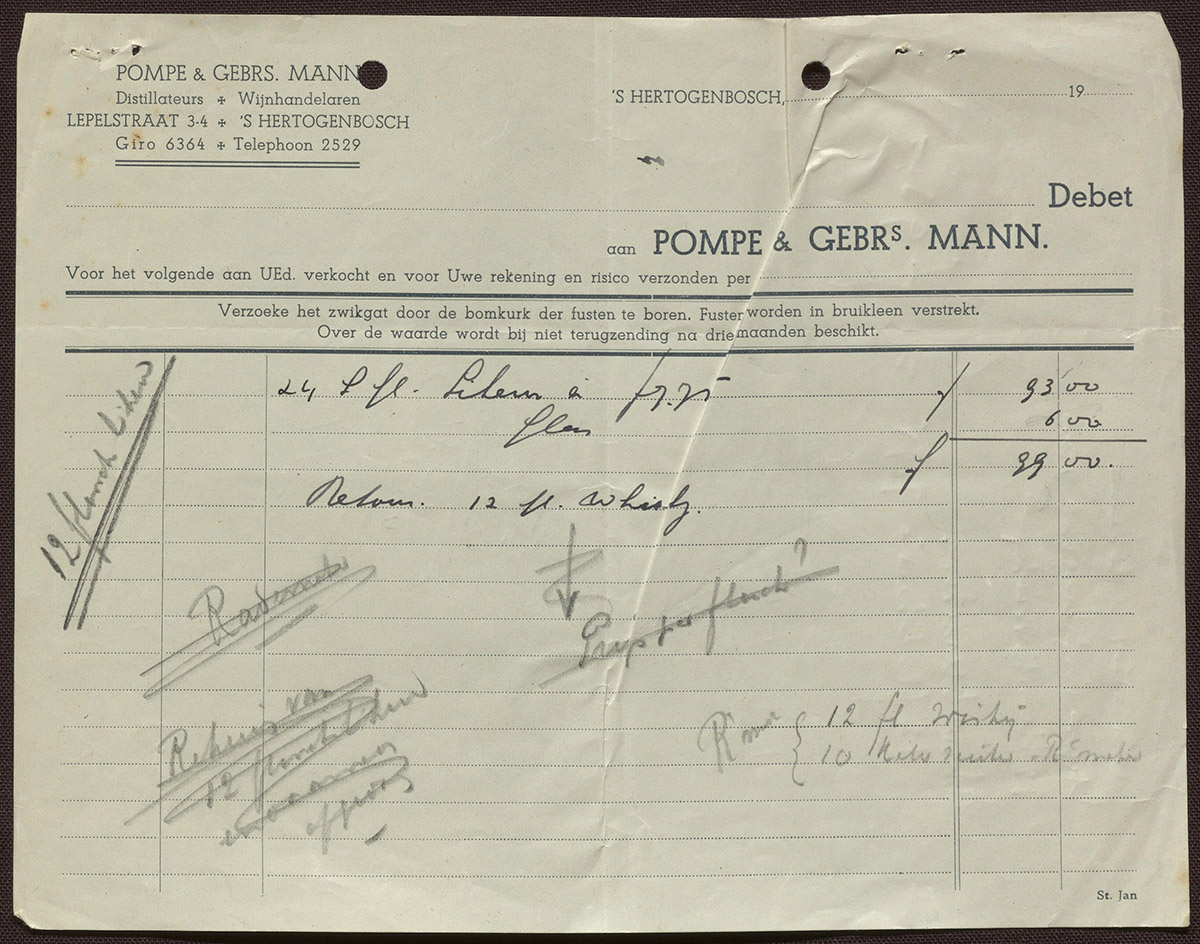 POMPE & GEBRS. MANN
Distillateurs + Wijnhandelaren
LEPELSTRAAT 3-4 + 'S HERTOGENBOSCH
Giro 6364 + Telephoon 2529
'S HERTOGENBOSCH, 19
Debet
aan POMPE & GEBRS. MANN.
Voor het volgende aan UEd. verkocht en voor Uwe rekening en risico verzonden per
Verzoeke het zwikgat door de bomkurk der fusten te boren. Fusten worden in bruikleen verstrekt.
Over de waarde wordt bij niet terugzending na drie maanden beschikt.
24 fl. à f 7.75 f 93 00
glas 6 00
f 99 00.
Retour. 12 fl. Whisky.
12 flesch
Prijs per flesch?
12 flesch
12 fl Wisky
10
St. Jan